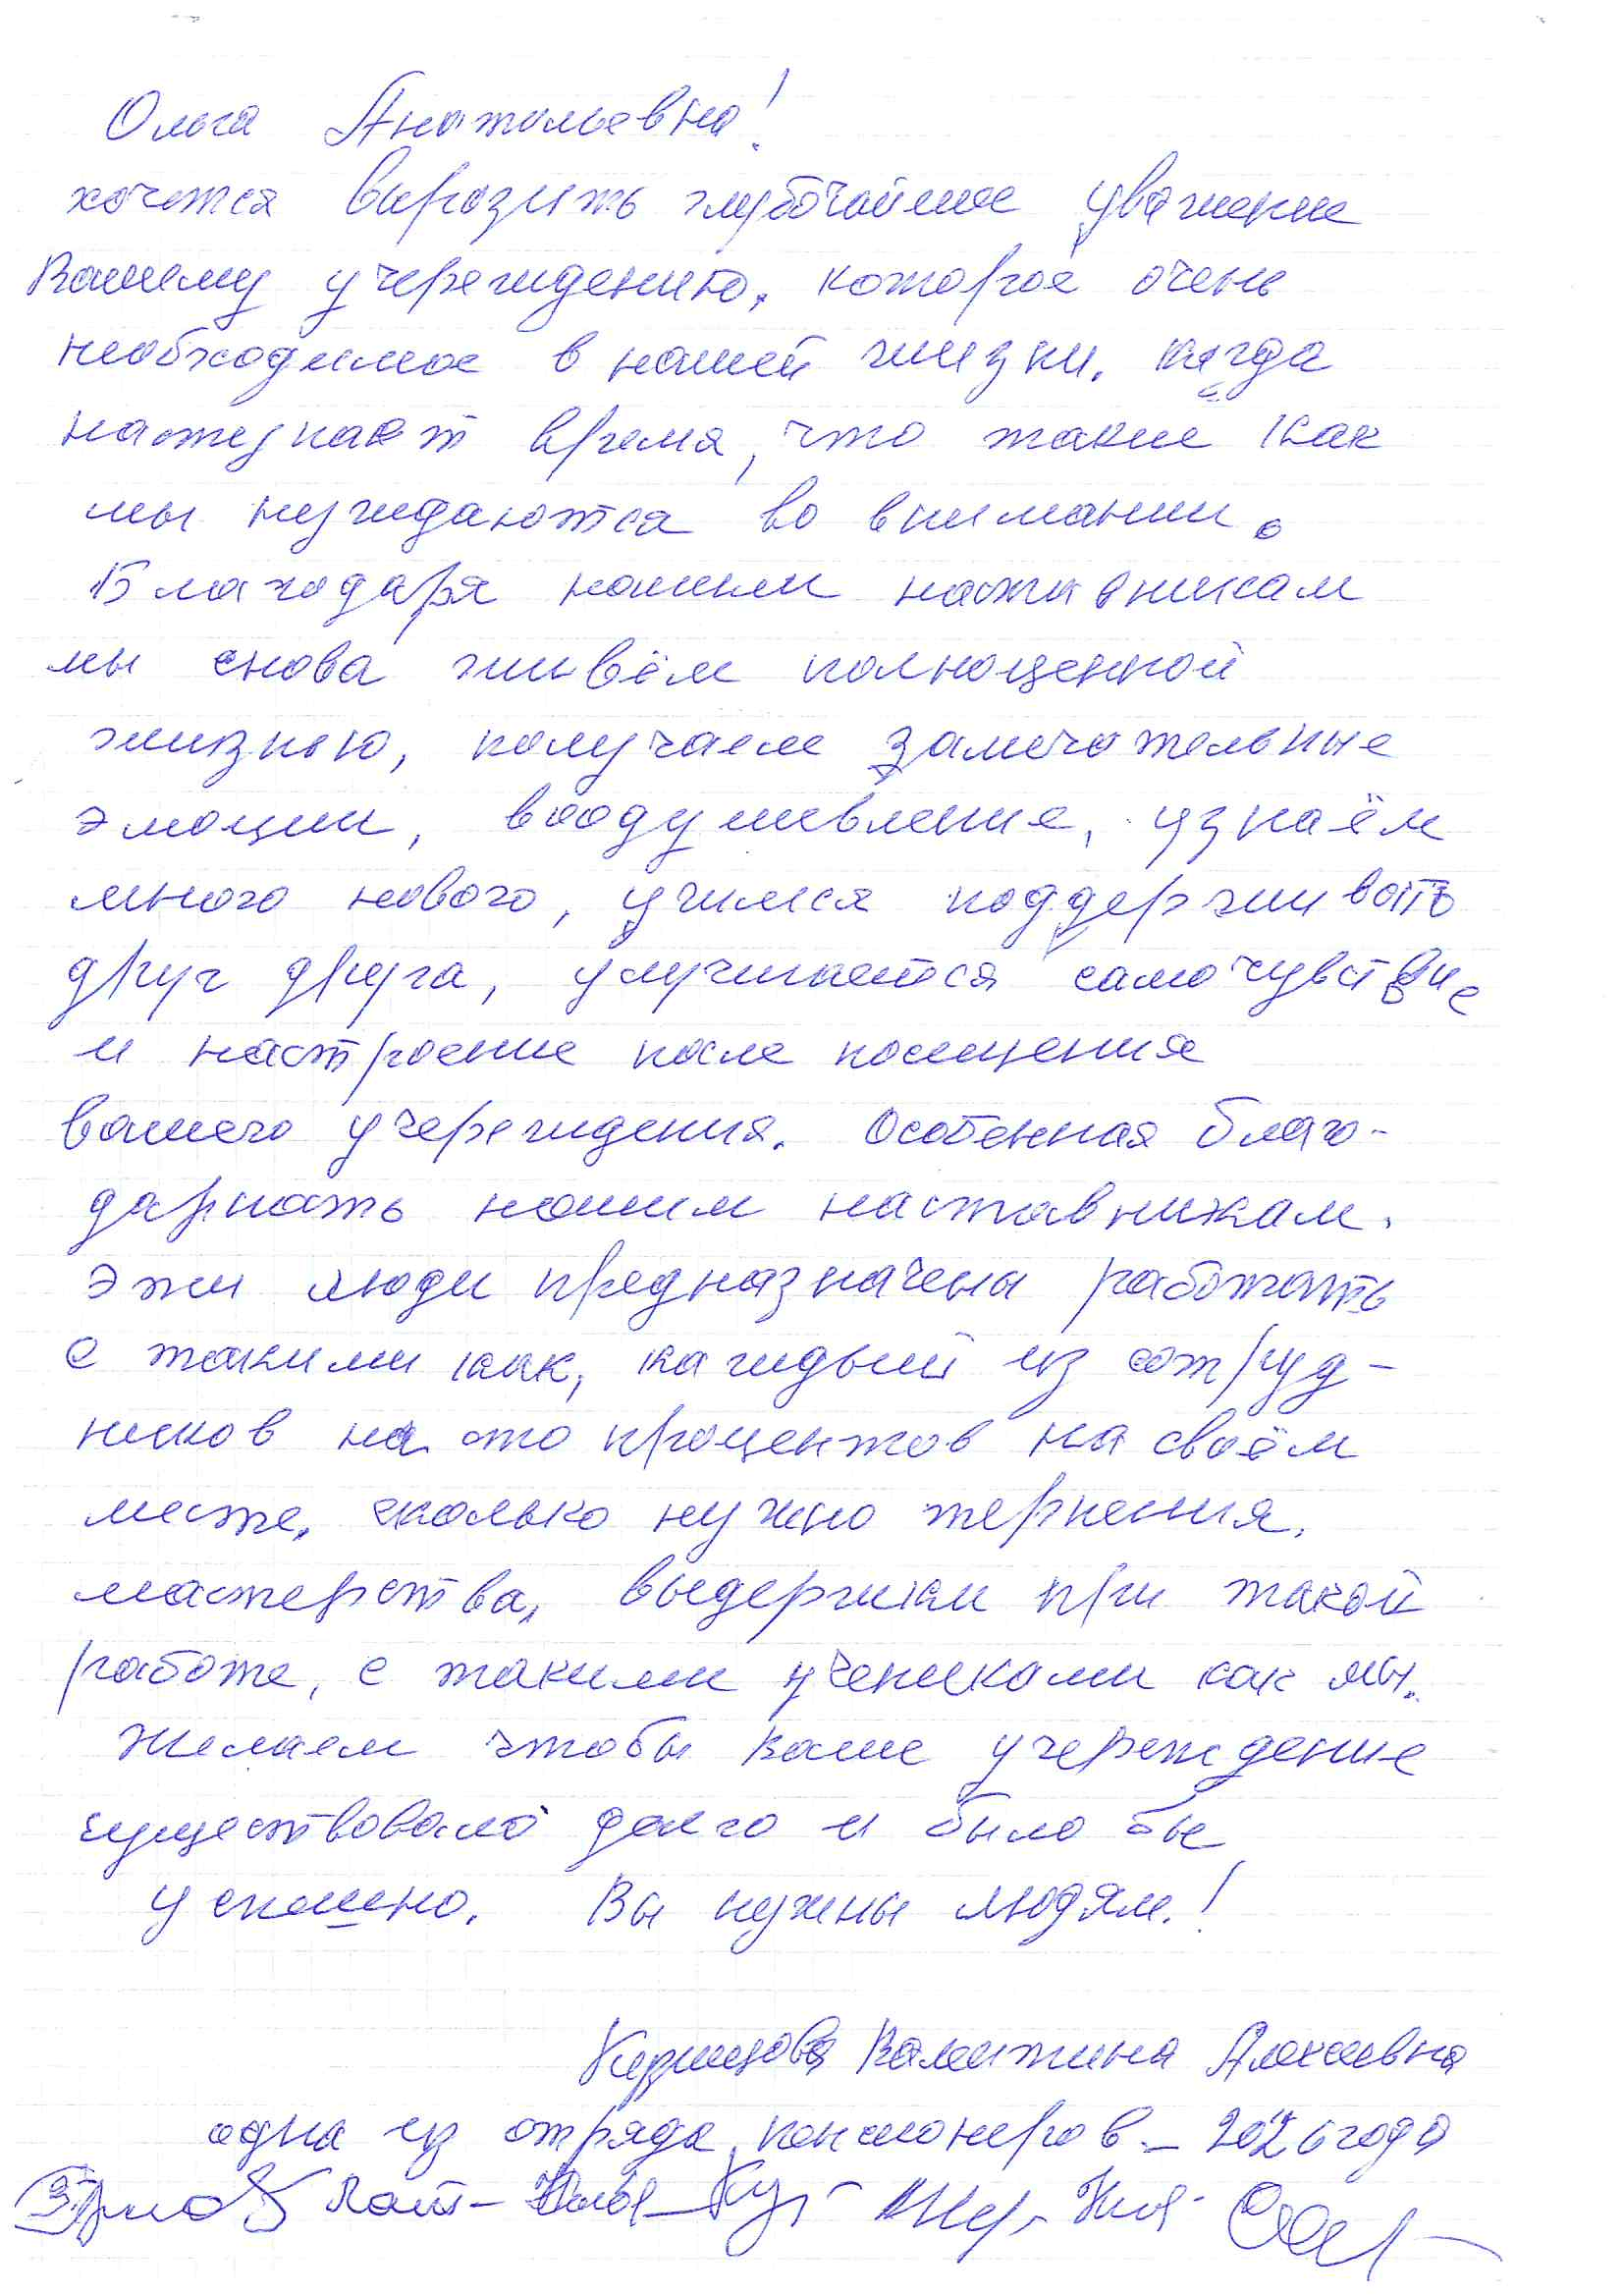 Ольга Анатольевна!
хочется выразить глубочайшее уважение
Вашему учереждению, которое очень
необходимое в нашей жизни, когда
наступает время, что такие как
мы нуждаются во внимании.
Благодаря нашим наставникам
мы снова живём полноценной
жизнью, получаем замечательные
эмоции, воодушевление, узнаём
много нового, учимся поддерживать
друг друга, улучшается самочувствие
и настроение после посещения
вашего учереждения. Особенная благо-
дарность нашим наставникам.
Эти люди предназначены работать
с такими как, каждый из сотруд-
ников на сто процентов на своём
месте, сколько нужно терпения,
мастерства, выдержки при такой
работе, с такими учениками как мы.
Желаем чтобы ваше учереждение
существовало долго и было бы
успешно. Вы нужны людям.!
Валентина Алексеевна
одна из отряда пенсионеров - 2026 года